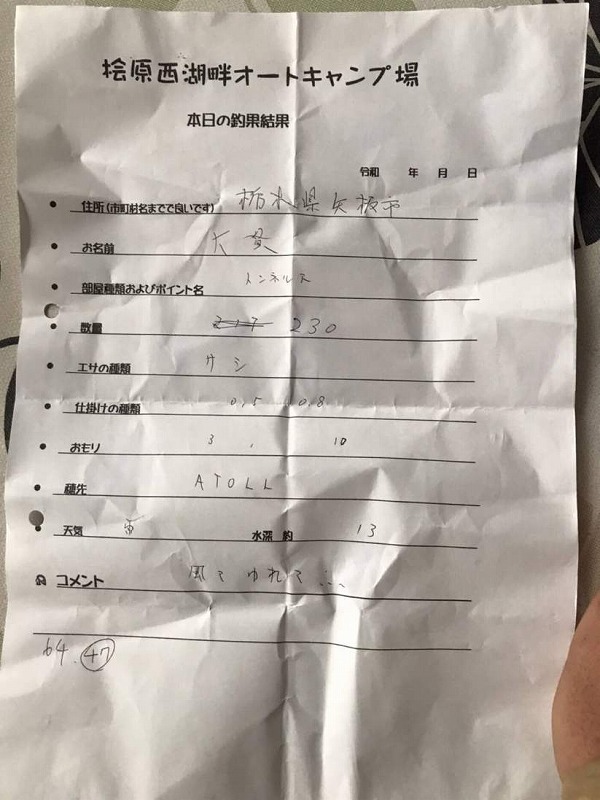 桧原西湖畔オートキャンプ場
本日の釣果結果
令和 年 月 日
住所(市町村名までで良いです) 栃木県矢板市
お名前 大貫
部屋種類およびポイント名 トンネル大
数量 217 230
エサの種類 サシ
仕掛けの種類 0.5 0.8
おもり 3. 10
穂先 ATOLL
天気 水深 約 13
コメント 風で ゆれて...
64. 47